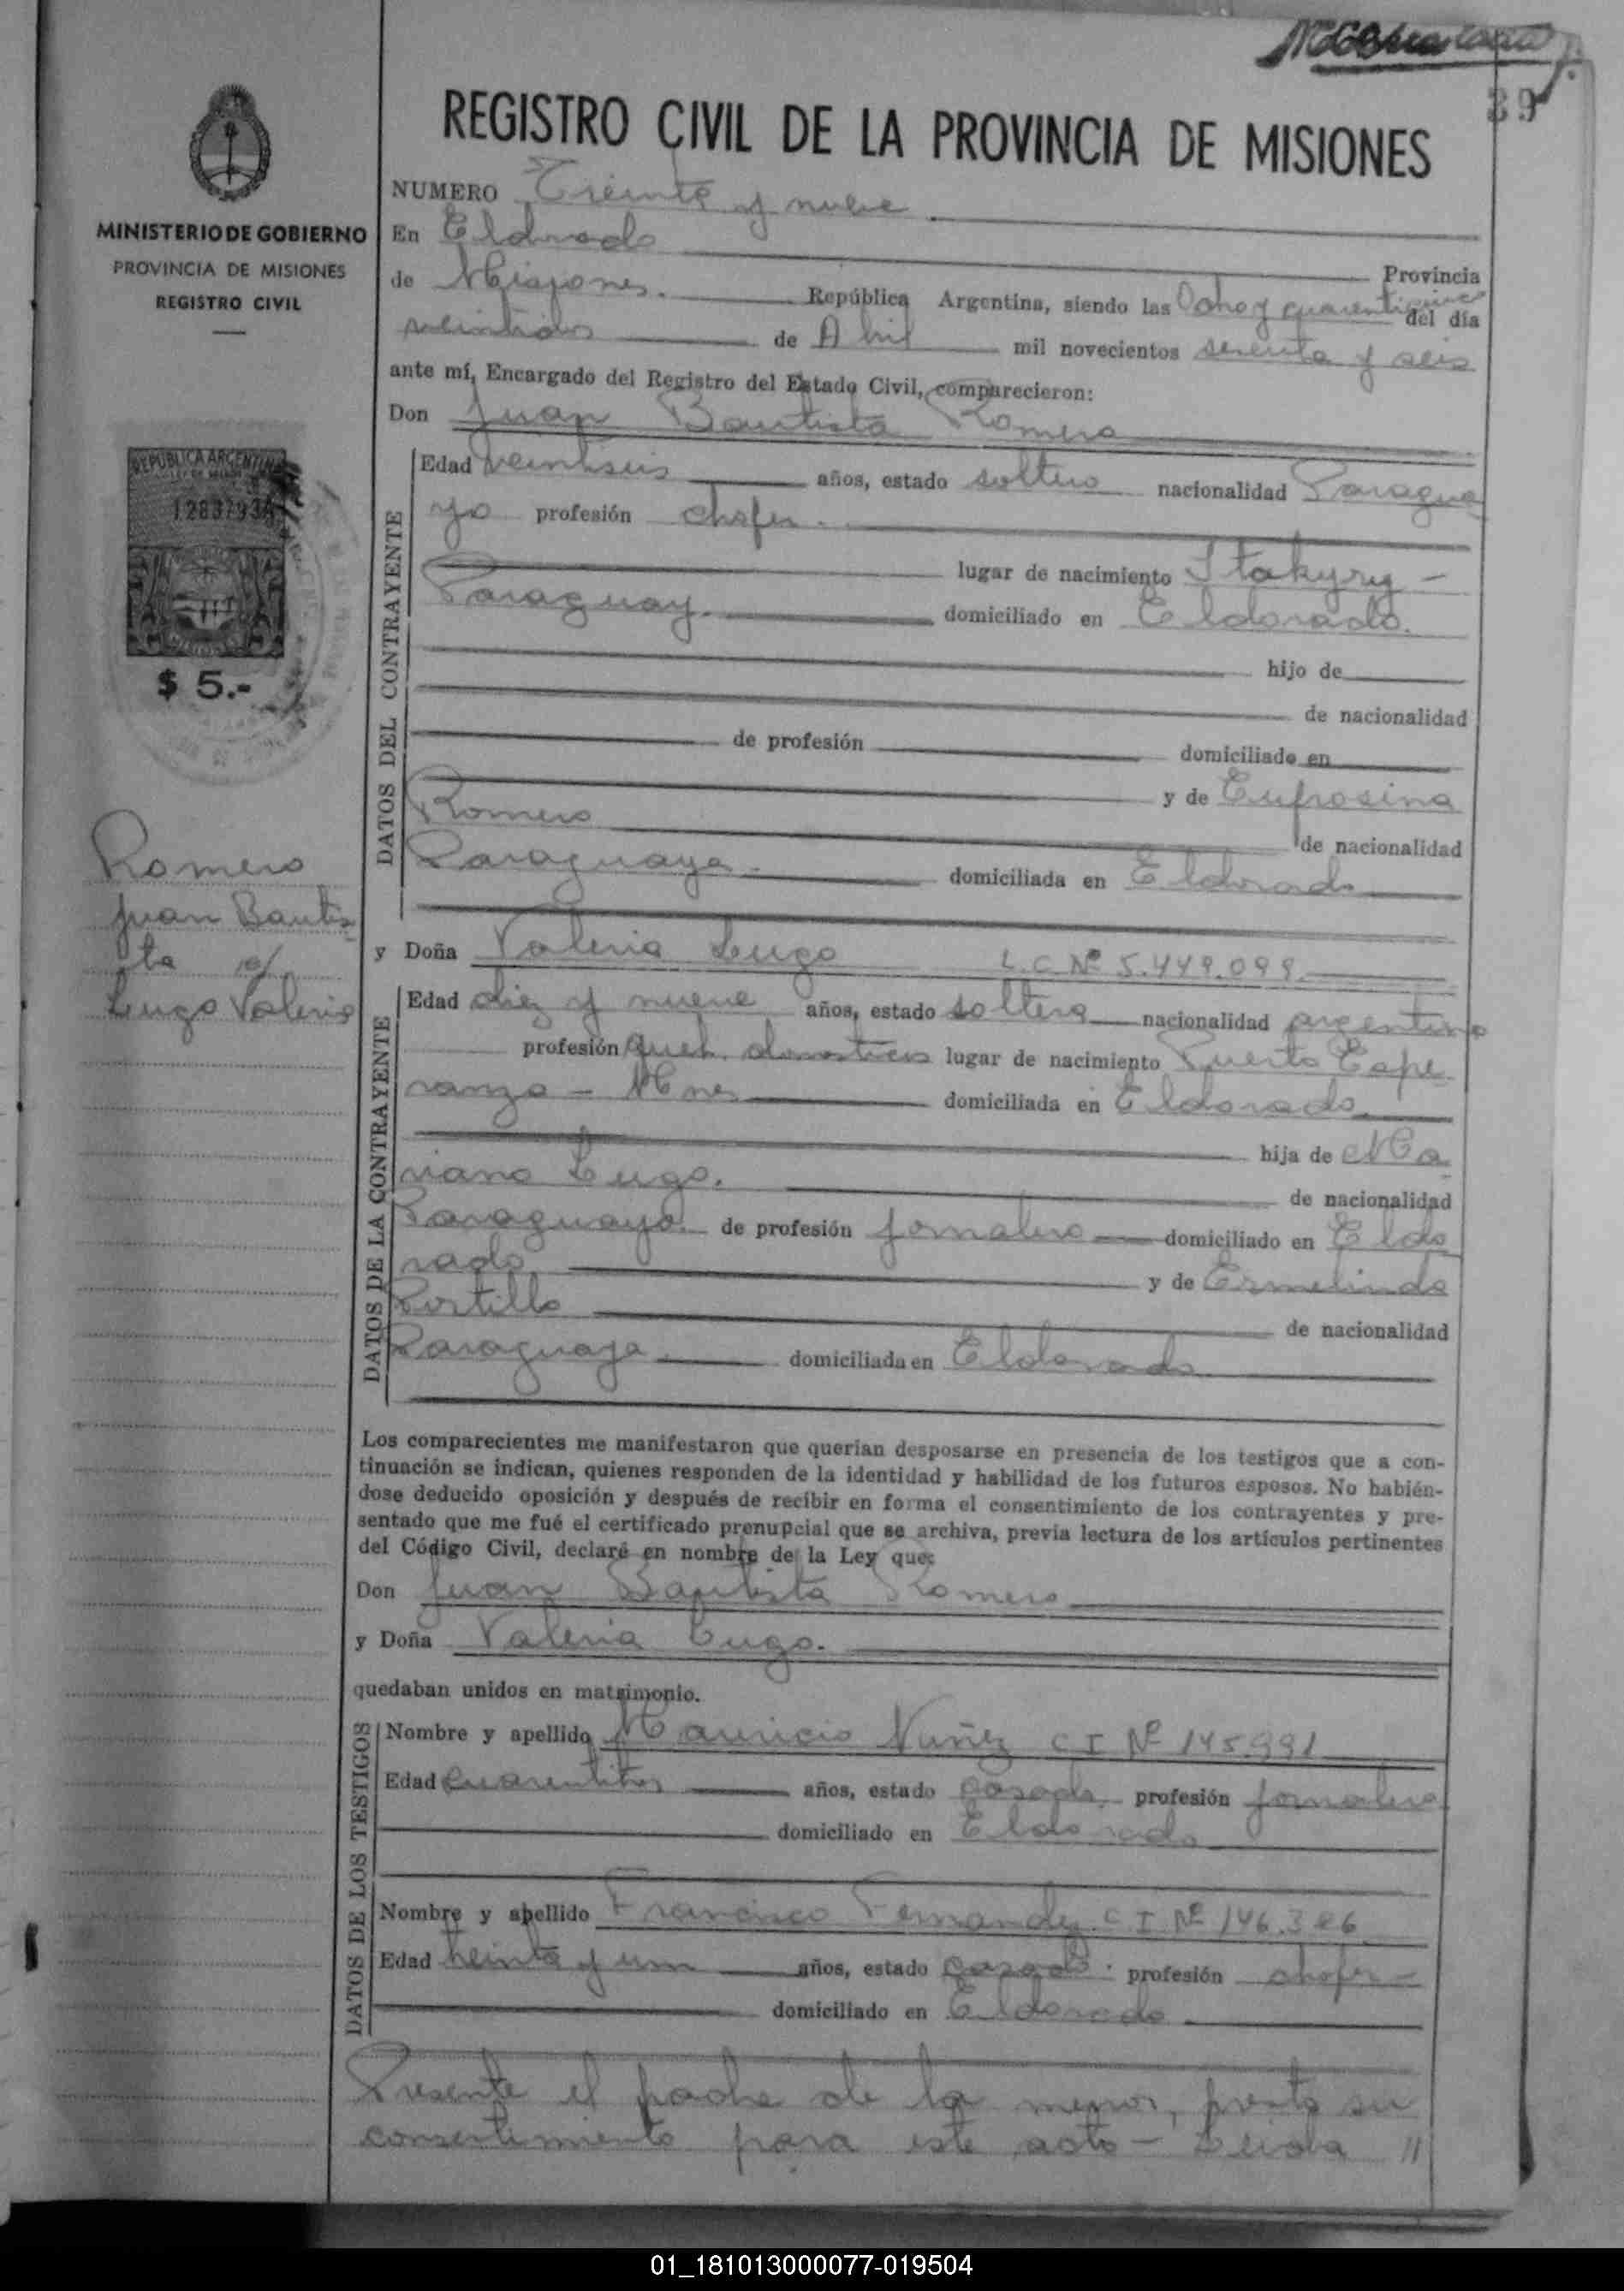 39
REGISTRO CIVIL DE LA PROVINCIA DE MISIONES
NUMERO Treinta y nueve
En Eldorado Provincia
de Misiones. República Argentina, siendo las Ocho y cuarenticinco del día
veintidos de Abril mil novecientos sesenta y seis
ante mí, Encargado del Registro del Estado Civil, comparecieron:
Don Juan Bautista Romero
Edad veintiseis años, estado soltero nacionalidad Paragua
yo profesión chofer.
lugar de nacimiento Itakyry -
Paraguay. domiciliado en Eldorado.
hijo de
de nacionalidad
de profesión domiciliado en
y de Eufrosina
Romero de nacionalidad
Paraguaya. domiciliada en Eldorado
DATOS DEL CONTRAYENTE
y Doña Valeria Lugo L.C. Nº 5.449.099.
Edad diez y nueve años, estado soltera nacionalidad argentina
profesión queh. domesticos lugar de nacimiento Puerto Espe
ranza - Mnes domiciliada en Eldorado
hija de Ma
riano Lugo. de nacionalidad
Paraguaya. de profesión jornalero domiciliado en Eldo
rado y de Ermelinda
Portillo de nacionalidad
Paraguaya domiciliada en Eldorado
DATOS DE LA CONTRAYENTE
Los comparecientes me manifestaron que querían desposarse en presencia de los testigos que a con-
tinuación se indican, quienes responden de la identidad y habilidad de los futuros esposos. No habién-
dose deducido oposición y después de recibir en forma el consentimiento de los contrayentes y pre-
sentado que me fué el certificado prenupcial que se archiva, previa lectura de los artículos pertinentes
del Código Civil, declaré en nombre de la Ley que:
Don Juan Bautista Romero
y Doña Valeria Lugo.
quedaban unidos en matrimonio.
Nombre y apellido Mauricio Nuñez C I Nº 145.991
Edad cuarentitres años, estado casado. profesión jornalero
domiciliado en Eldorado
Nombre y apellido Francisco Fernandez C I Nº 146.386
Edad treinta y um años, estado casado. profesión chofer -
domiciliado en Eldorado
DATOS DE LOS TESTIGOS
Presente el padre de la menor, presta su
consentimiento para este acto - Leida //
MINISTERIO DE GOBIERNO
PROVINCIA DE MISIONES
REGISTRO CIVIL
REPUBLICA ARGENTINA
$ 5.-
Romero
Juan Bautis
ta c/
Lugo Valeria
01_181013000077-019504